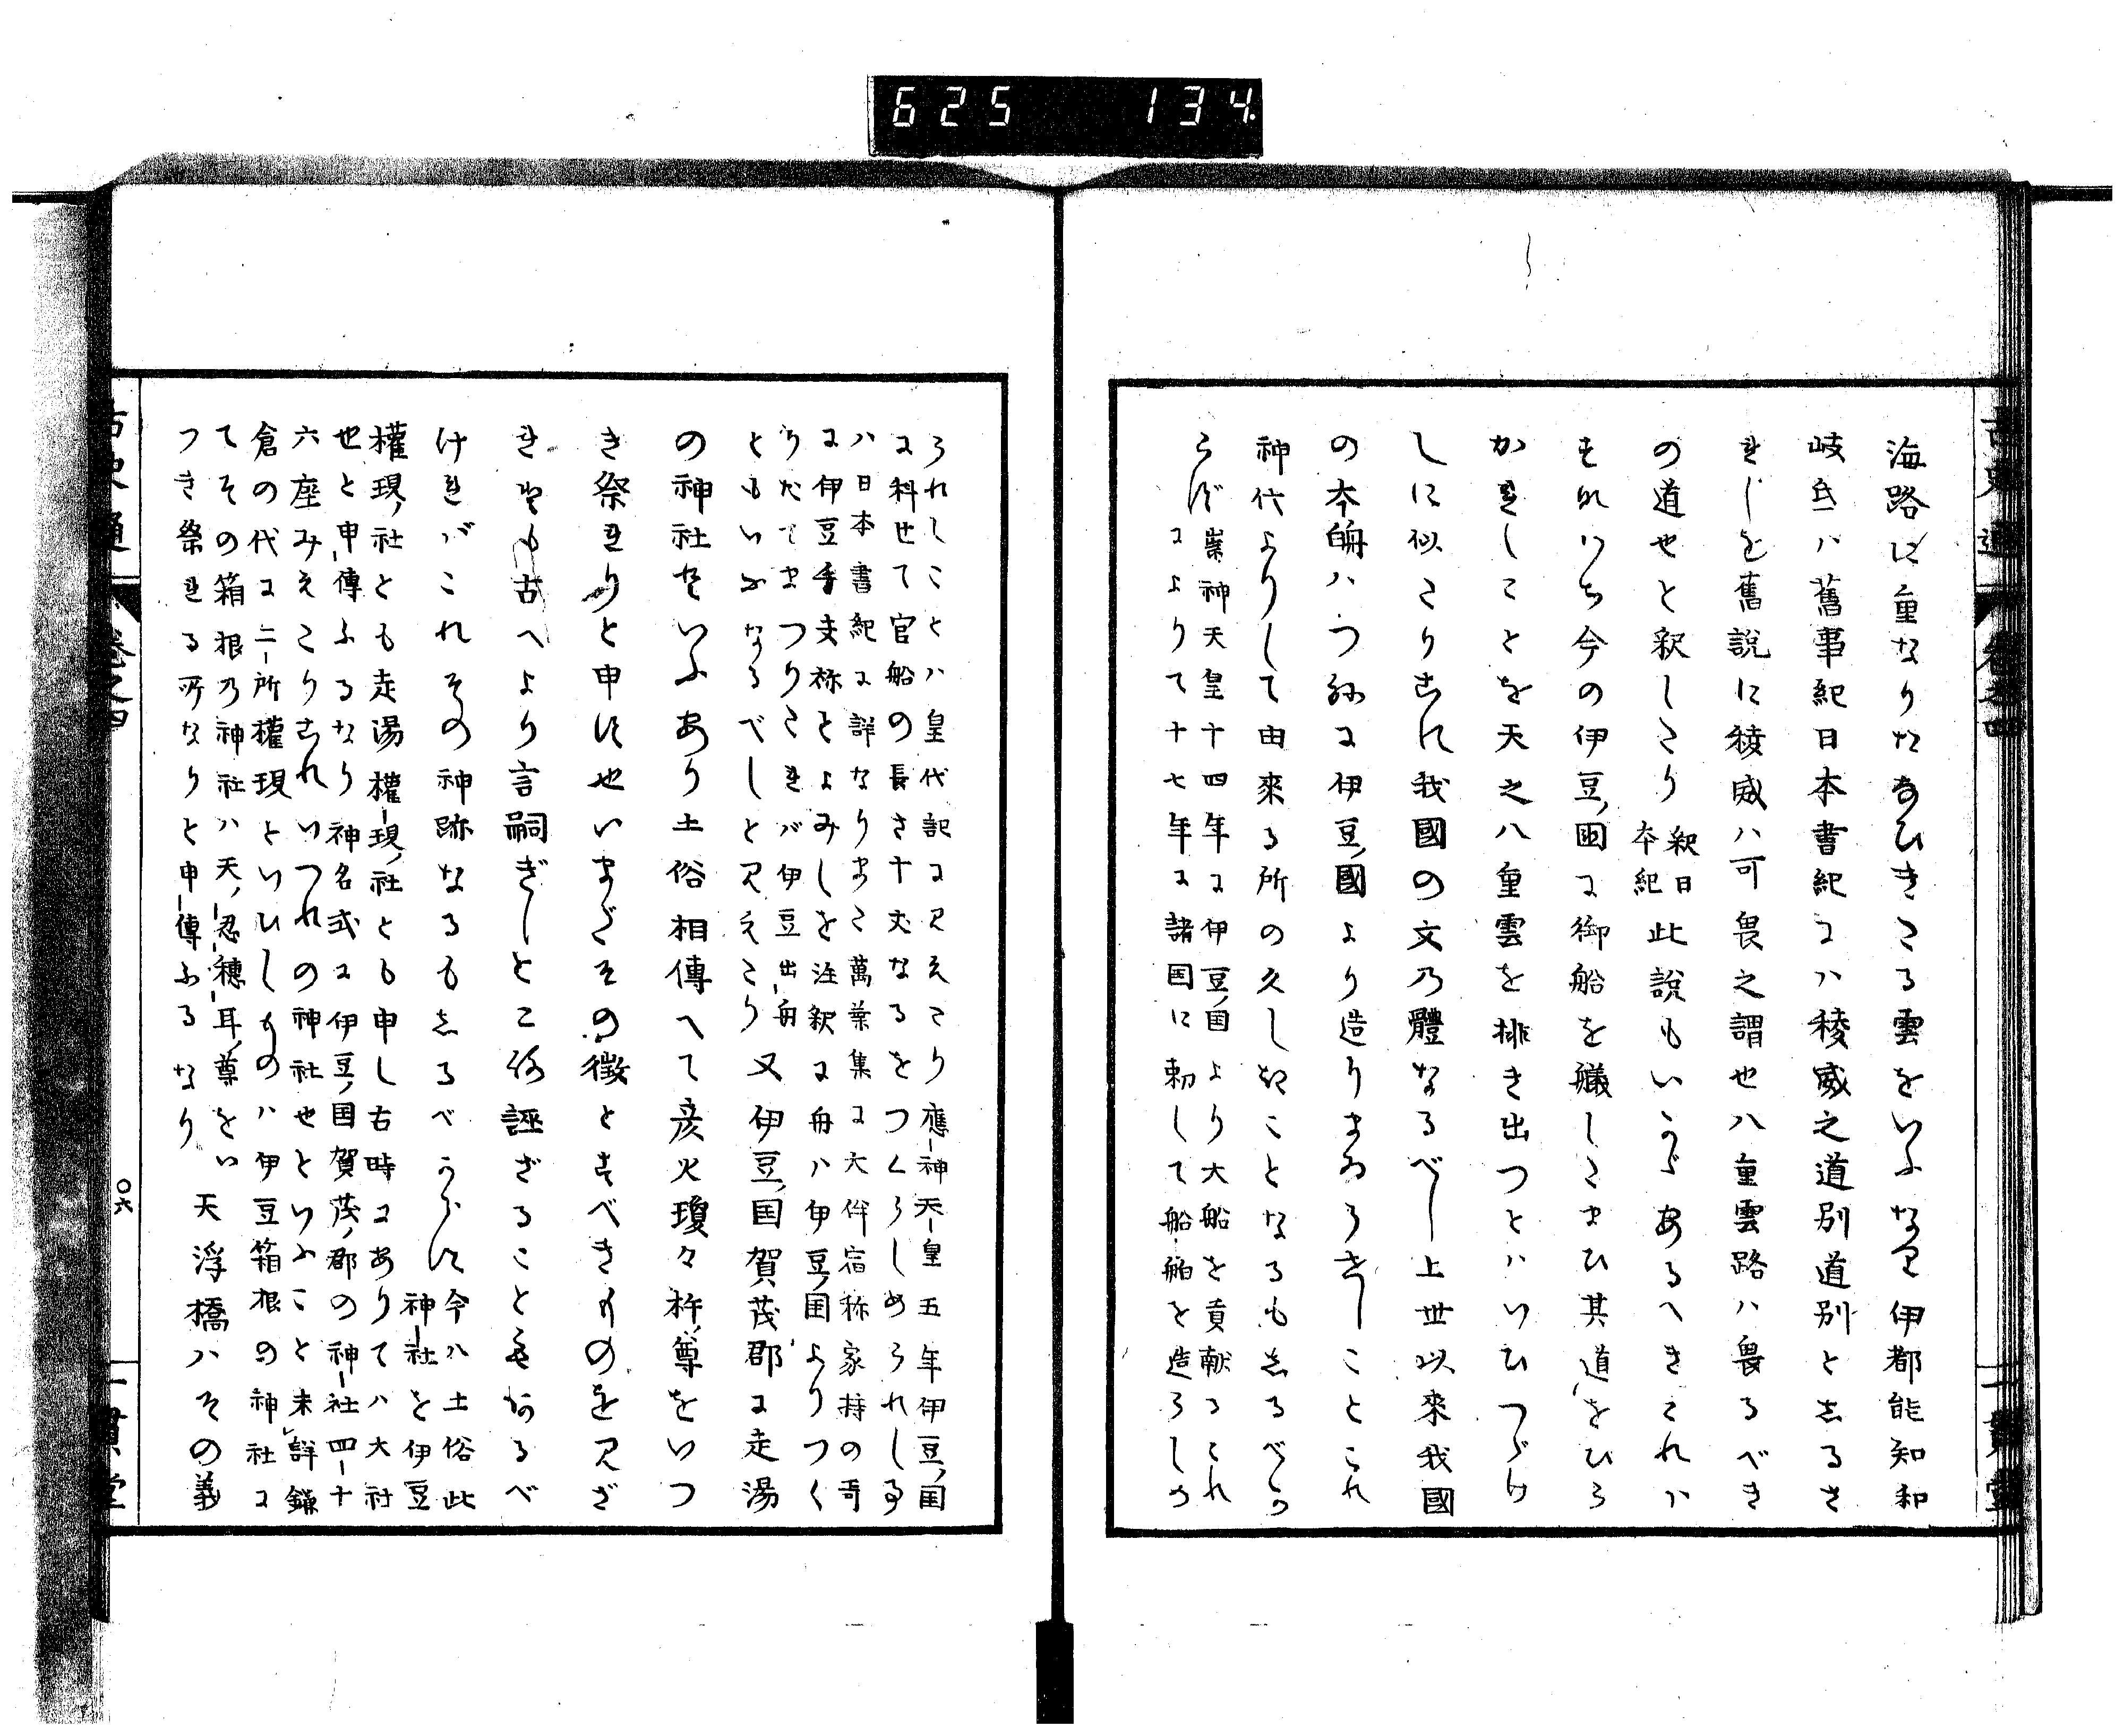 625 134
古史通 卷之四 一貫堂
海路に重なりたなひきたる雲をいふなり伊都能知和
岐弖ハ舊事紀日本書紀にハ稜威之道別道別としるさ
れしを舊説に稜威ハ可畏之謂也八重雲路ハ畏るべき
の道也と釈したり
釈日
本紀
此説もいかゞあるへきこれハ
すなハち今の伊豆ノ國に御船を艤したまひ其道をひら
かれしことを天之八重雲を排き出つとハいひつゞけ
しに似たりされ我國の文乃體なるべし上世以來我國
の本船ハつねに伊豆ノ國より造りまゐらせしことこれ
神代よりして由來る所の久しきことなるもしるべか
らず
崇神天皇十四年に伊豆ノ国より大船を貢献つこれ
によりて十七年に諸国に勅して船舶を造らしめ
られしことハ皇代記に見えたり應神天皇五年伊豆ノ国
に科せて官船の長さ十丈なるをつくらしめられし事
ハ日本書紀に詳なりまた萬葉集に大伴宿祢家持の哥
に伊豆手夫祢とよみしを注釈に舟ハ伊豆ノ国よりつく
りたてまつりたれバ伊豆出舟
ともいふなるべしと見えたり
又伊豆ノ国賀茂郡に走湯
の神社といふあり土俗相傳へて彦火瓊々杵ノ尊をいつ
き祭れりと申す也いまだその徴とすべきものを見ざ
れども古へより言嗣ぎしところ誣ざることもあるべ
けれバこれその神跡なるもしるべからす
今ハ土俗此
神社を伊豆
權現ノ社とも走湯權現ノ社とも申し右時にありてハ大社
也と申傳ふるなり神名式に伊豆ノ国賀茂ノ郡の神社四十
六座みえたりされいつれの神社也といふこと未詳鎌
倉の代に二所權現といひしものハ伊豆箱根の神社に
てその箱根乃神社ハ天ノ忍穗耳ノ尊をい
つき祭れる所なりと申傳ふるなり
天浮橋ハその義
古史通 卷之四 〇六 一貫堂